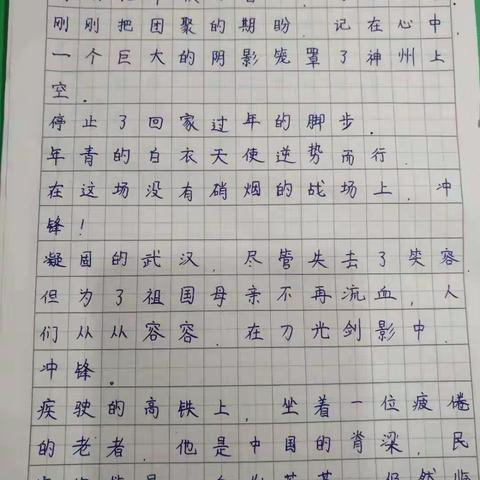 刚刚把团聚的期盼．记在心中
一个巨大的阴影笼罩了神州上
空．
停止了回家过年的脚步．
年青的白衣天使逆势而行．
在这场没有硝烟的战场上，冲
锋！
凝固的武汉，尽管失去了笑容
但为了祖国母亲不再流血，人
们从从容容．在刀光剑影中．
冲锋．
疾驶的高铁上，坐着一位疲倦
的老者．他是中国的脊梁，民